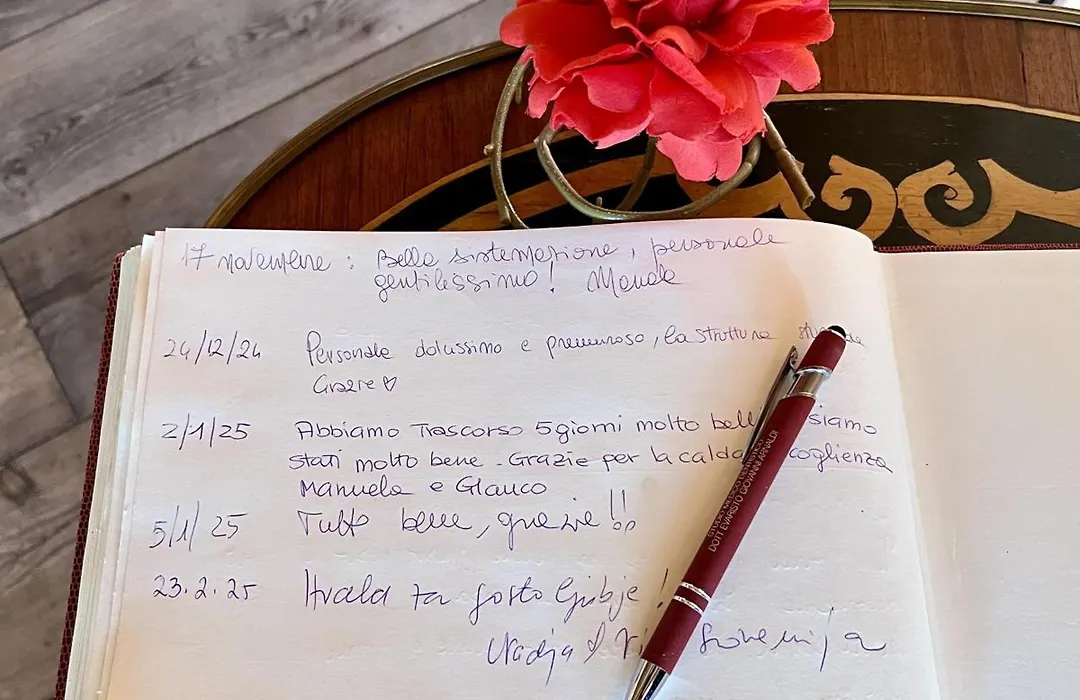 17 novembre : Bella sistemazione, personale
gentilissimo!
24/12/24 Personale dolcissimo e premuroso, la struttura
Grazie ♡
2/1/25 Abbiamo Trascorso 5 giorni molto siamo
stati molto bene - Grazie per la calda
Manuela e Glauco
5/1/25 Tutto bene, grazie!!
23.2.25 Hvala za gostoljubje!
Nadja Slovenija
DOTT. EVARISTO GIOVANNI ARNALDI